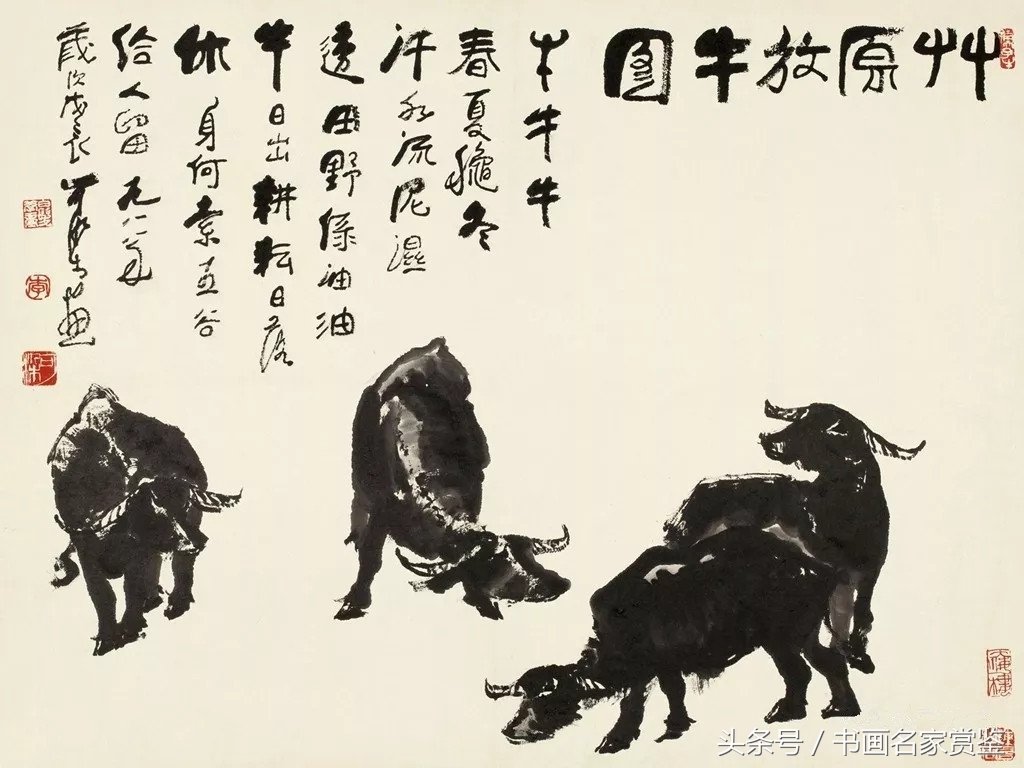 艸原放牛圖
牛牛牛
春夏龝冬
汗水流泥濕
透田野綠油油
牛日出耕耘日落
休身何索五谷
給人留
歲次戊辰
李
可染
头条号 / 书画名家赏鉴